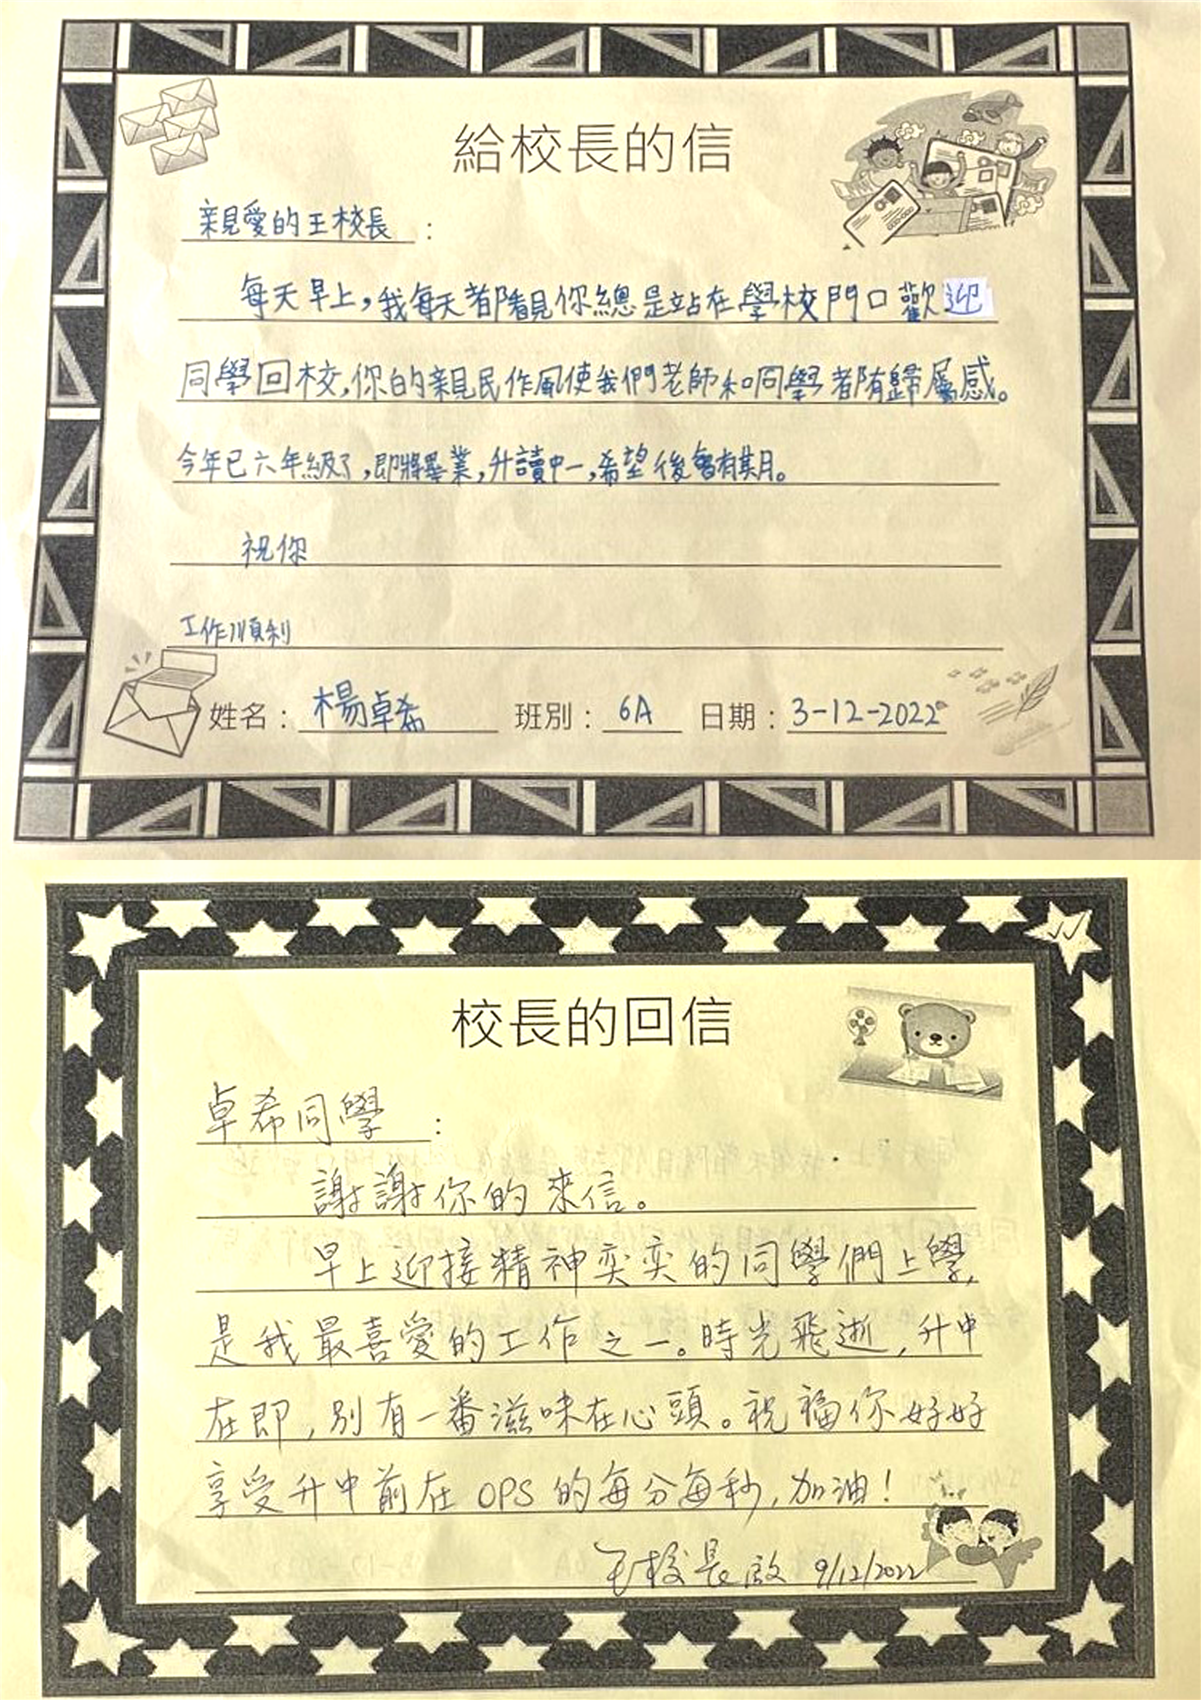 給校長的信
親愛的王校長：
每天早上，我每天都看見你總是站在學校門口歡迎
同學回校，你的親民作風使我們老師和同學都有歸屬感。
今年已六年級了，即將畢業，升讀中一，希望後會有期。
祝你
工作順利
姓名：楊卓希 班別：6A 日期：3-12-2022
校長的回信
卓希同學：
謝謝你的來信。
早上迎接精神奕奕的同學們上學，
是我最喜愛的工作之一。時光飛逝，升中
在即，別有一番滋味在心頭。祝福你好好
享受升中前在OPS的每分每秒，加油！
王校長啟 9/12/2022